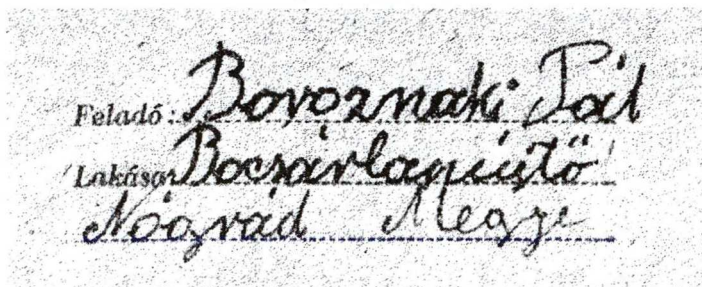 Feladó: Bovoznaki Pál
Lakása: Bocsárlapujtő
Nógrád Megye